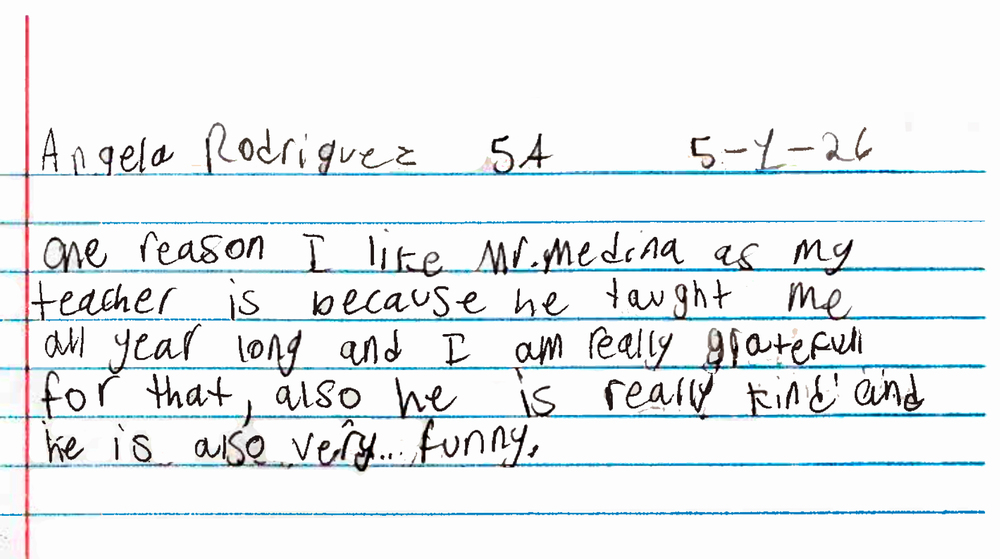 Angela Rodriguez 5A 5-1-26
One reason I like Mr. Medina as my
teacher is because he taught me
all year long and I am really gratefull
for that, also he is really kind and
he is also very funny.